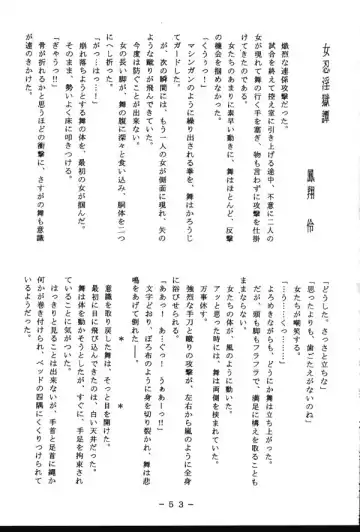 女忍淫獄譚
鳳翔 伶
熾烈な連係攻撃だった。
試合を終えて控え室に引き上げる途中、不意に二人の
女が現れて舞の行く手を塞ぎ、物も言わずに攻撃を仕掛
けてきたのである。
女たちのあまりに素早い動きに、舞はほとんど、反撃
の機会が掴めなかった。
「くうぅっ！」
マシンガンのように繰り出される拳を、舞はかろうじ
てガードした。
が、次の瞬間には、もう一人の女が側面に現れ、矢の
ような蹴りが飛んできていた。
今度は防ぐことが出来ない。
女の長い脚が、舞の腹に深々と食い込み、胴体を二つ
にへし折った。
「がっ…はっ…！」
崩れ落ちようとする舞の体を、最初の女が掴んだ。
そのまま、勢いよく床に叩きつける。
「ぎゃうっ!!」
骨が折れるかと思うほどの衝撃に、さすがの舞も意識
が遠のきかけた。
「どうした。さっさと立ちな」
「思ったよりも、歯ごたえがないのね」
女たちが嘲笑する。
「…う……くっ………」
よろめきながらも、どうにか舞は立ち上がった。
だが、頭も脚もフラフラで、満足に構えを取ることも
ままならない。
女たちの体が、風のように動いた。
アッと思った時には、舞は両側を挟まれていた。
万事休す。
強烈な手刀と蹴りの攻撃が、左右から嵐のように全身
に浴びせられる。
「ああっ！…ぐっ！ うぁあーっ!!」
文字どおり、ぼろ布のように全身を切り裂かれ、舞は悲
鳴をあげて倒れた――。
＊ ＊
意識を取り戻した舞は、そっと目を開けた。
最初に目に飛び込んできたのは、白い天井だった。
舞は体を動かそうとしたが、すぐに、手足を拘束され
ていることに気がついた。
はっきりと見ることは出来ないが、手首と足首に縄か
何かが巻き付けられ、ベッドの四隅にくくりつけられて
いるようだった。
－53－